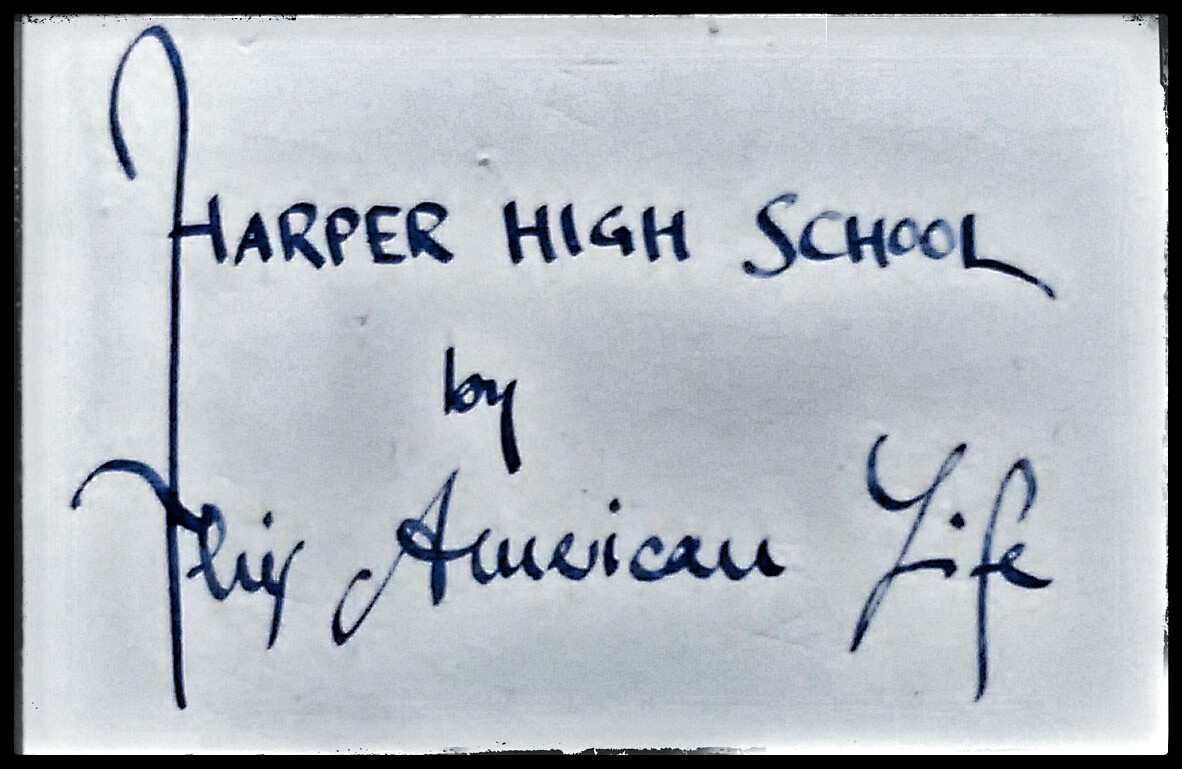 HARPER HIGH SCHOOL
by
This American Life